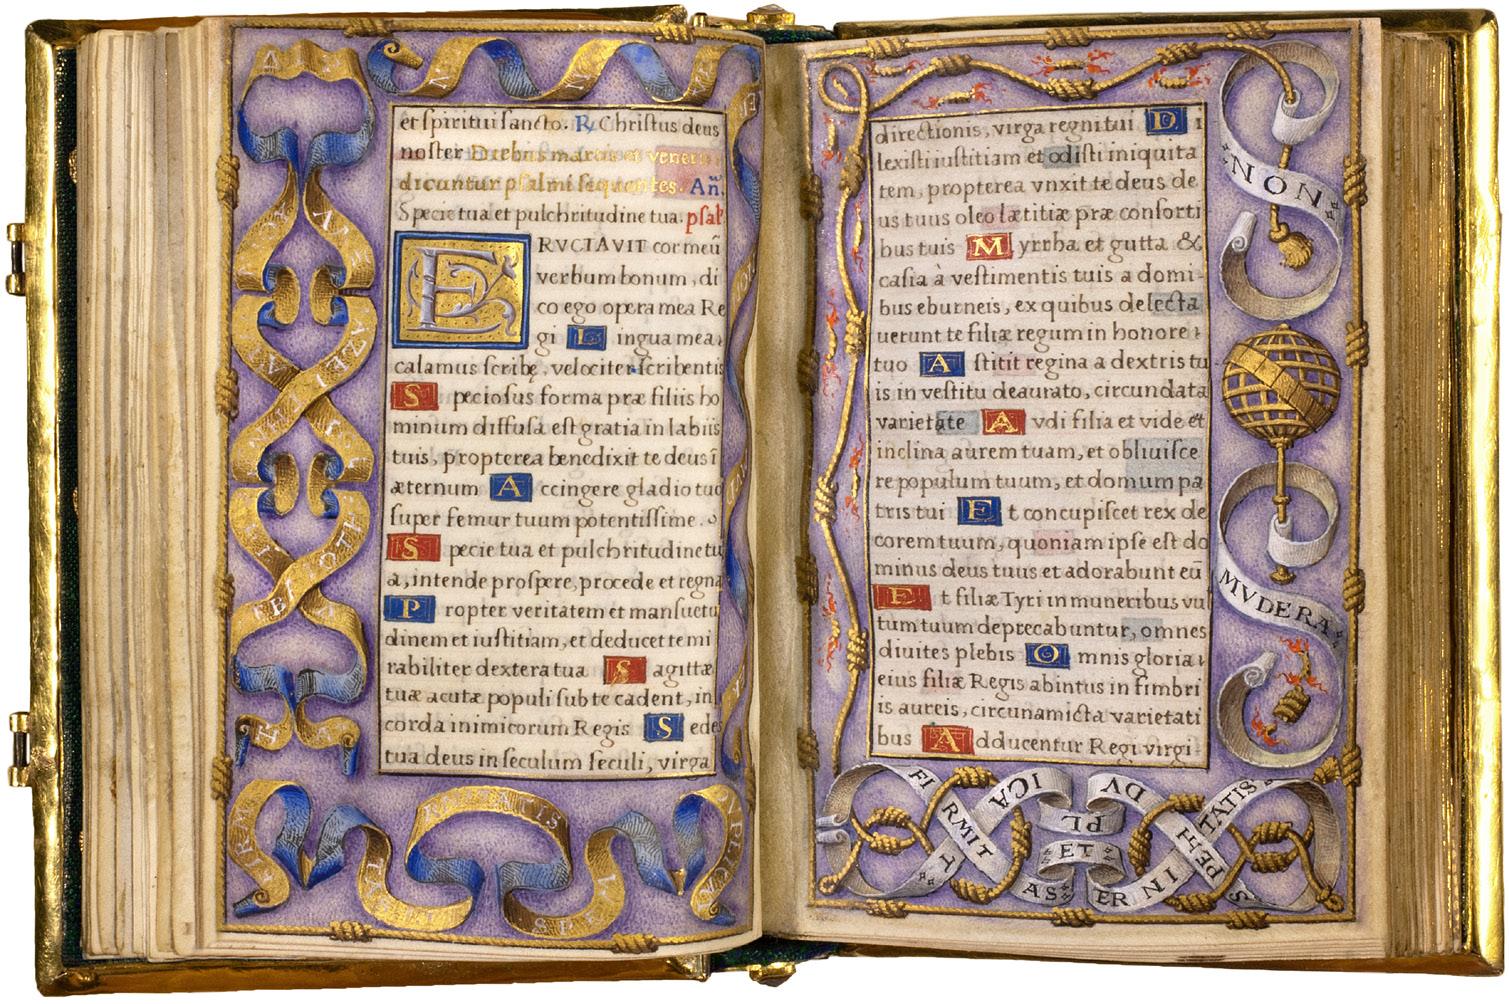 et spiritui sancto. ℟ Christus deus
noster Diebus martis et veneris
dicuntur psalmi sequentes. Añ.
Specie tua et pulchritudine tua. psal.
ERVCTAVIT cor meū
verbum bonum, di
co ego opera mea Re
gi Lingua mea
calamus scribę, velociter scribentis
Speciosus forma præ filiis ho
minum diffusa est gratia in labiis
tuis, propterea benedixit te deus ī
æternum Accingere gladio tuo
super femur tuum potentissime.
Specie tua et pulchritudine tu
a, intende prospere, procede et regna
Propter veritatem et mansuetu
dinem et iustitiam, et deducet te mi
rabiliter dextera tua Sagittæ
tuæ acutæ populi sub te cadent, in
corda inimicorum Regis Sedes
tua deus in seculum seculi, virga
directionis, virga regni tui Di
lexisti iustitiam et odisti iniquita
tem, propterea vnxit te deus de
us tuus oleo lætitiæ præ consorti
bus tuis Myrrha et gutta &
casia à vestimentis tuis a domi-
bus eburneis, ex quibus delecta
uerunt te filiæ regum in honore
tuo Astitit regina a dextris tu
is in vestitu deaurato, circundata
varietate Avdi filia et vide et
inclina aurem tuam, et obliuisce
re populum tuum, et domum pa
tris tui Et concupiscet rex de
corem tuum, quoniam ipse est do
minus deus tuus et adorabunt eū
Et filiæ Tyri in muneribus vul
tum tuum deprecabuntur, omnes
diuites plebis Omnis gloria
eius filiæ Regis abintus in fimbri
is aureis, circunamicta varietati
bus Adducentur Regi virgi-
NON
MVDERA
FIRMIT
AS ET
DVPL
ICA
T
PERNI
TATIS